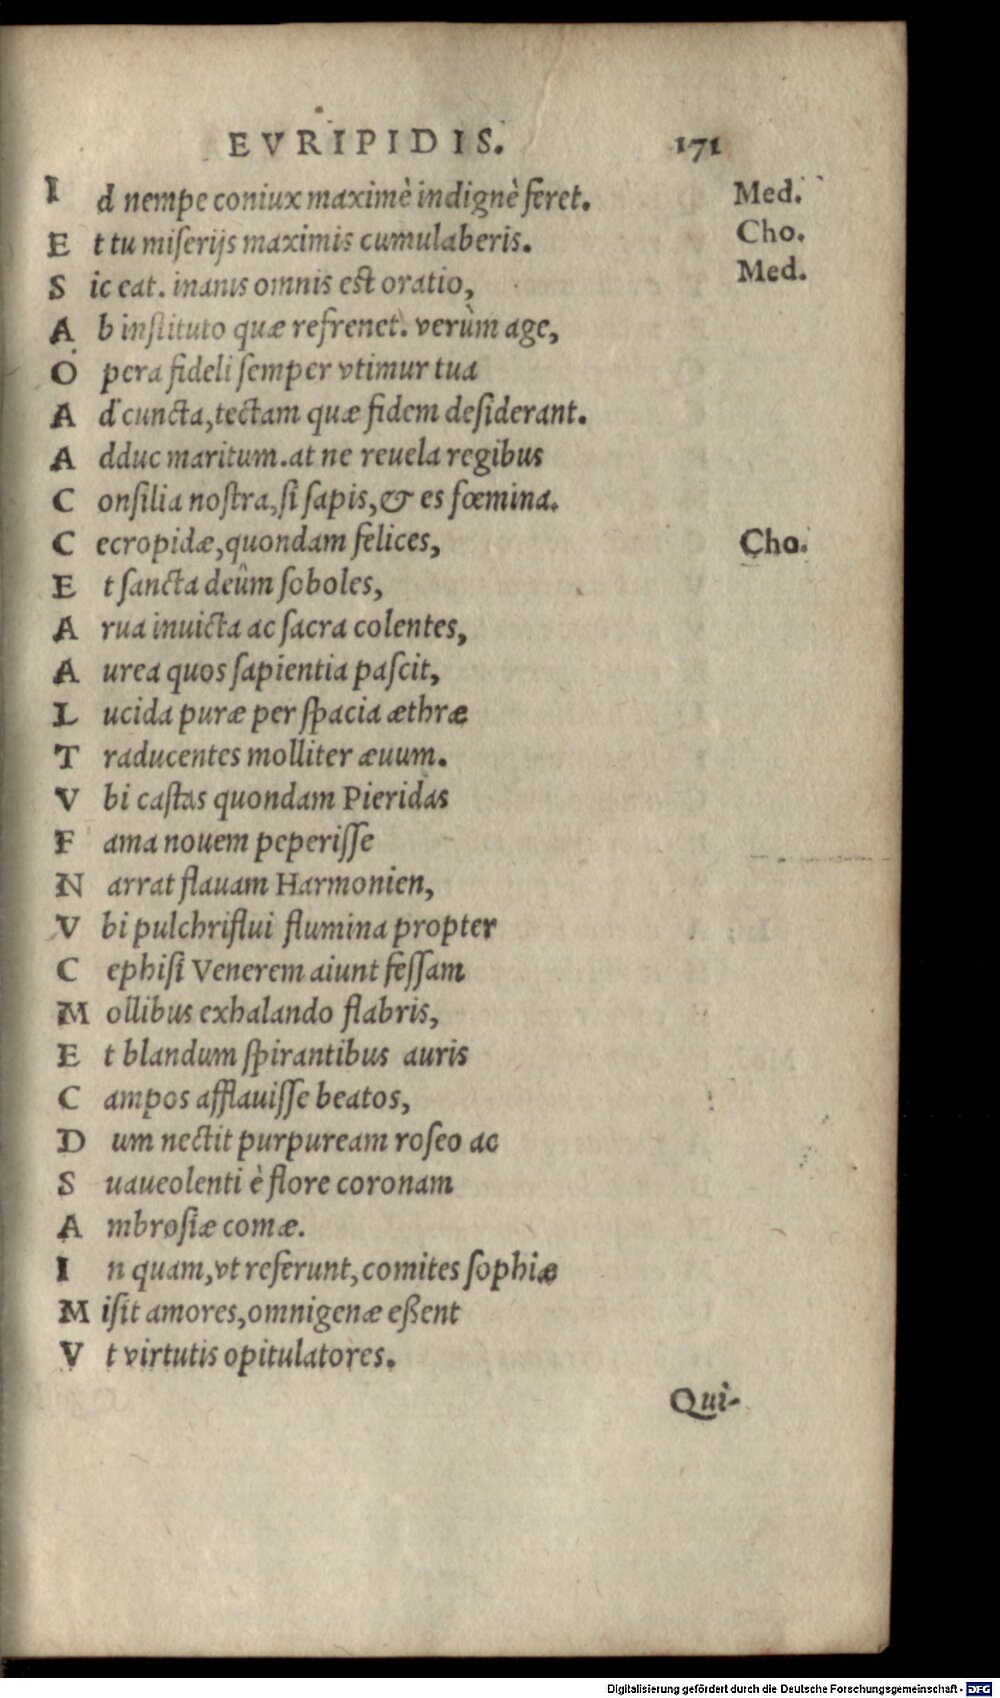 EVRIPIDIS. 171
Id nempe coniux maximè indignè feret. Med.
Et tu miserijs maximis cumulaberis. Cho.
Sic eat. inanis omnis est oratio, Med.
Ab instituto quæ refrenet. verùm age,
Opera fideli semper vtimur tua
Ad cuncta, tectam quæ fidem desiderant.
Adduc maritum. at ne reuela regibus
Consilia nostra, si sapis, & es fœmina.
Cecropidæ, quondam felices, Cho.
Et sancta deûm soboles,
Arua inuicta ac sacra colentes,
Aurea quos sapientia pascit,
Lucida puræ per spacia æthræ
Traducentes molliter æuum.
Vbi castas quondam Pieridas
Fama nouem peperisse
Narrat flauam Harmonien,
Vbi pulchriflui flumina propter
Cephisi Venerem aiunt fessam
Mollibus exhalando flabris,
Et blandum spirantibus auris
Campos afflauisse beatos,
Dum nectit purpuream roseo ac
Suaueolenti è flore coronam
Ambrosiæ comæ.
In quam, vt referunt, comites sophiæ
Misit amores, omnigenæ eßent
Vt virtutis opitulatores.
Qui-
Digitalisierung gefördert durch die Deutsche Forschungsgemeinschaft - DFG